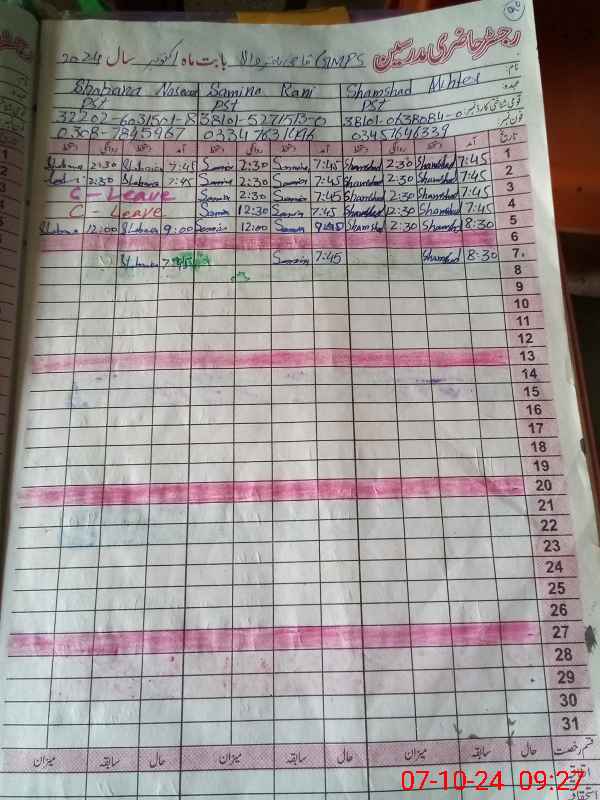 رجسٹر حاضری مدرسین GMPS بابت ماہ اکتوبر سال 2024
نام: Shamshad Samina Rani Shabana
عہدہ: PST PST PST
38101-0638084-0 38101-5271513-0 32202-6031501-8
فون نمبر: 03457646339 0308-7845967
تاریخ آمد دستخط روانگی دستخط آمد دستخط روانگی دستخط آمد دستخط روانگی دستخط
1 7:45 Shamshad 2:30 Shamshad 7:45 Samina 2:30 Samina 7:45 Shabana 2:30 Shabana
2 7:45 Shamshad 2:30 Shamshad 7:45 Samina 2:30 Samina 7:45 Shabana 2:30
3 7:45 Shamshad 2:30 Shamshad 7:45 Samina 2:30 Samina C - Leave
4 7:45 Shamshad 12:30 Shamshad 7:45 Samina 12:30 Samina C - Leave
5 8:30 Shamshad 2:30 Shamshad Samina 12:00 Samina 9:00 Shabana 12:00 Shabana
6
7 8:30 Shamshad 7:45 Samina Shabana
8
9
10
11
12
13
14
15
16
17
18
19
20
21
22
23
24
25
26
27
28
29
30
31
قسم رخصت حال سابقہ میزان حال سابقہ میزان حال سابقہ میزان
07-10-24 09:27